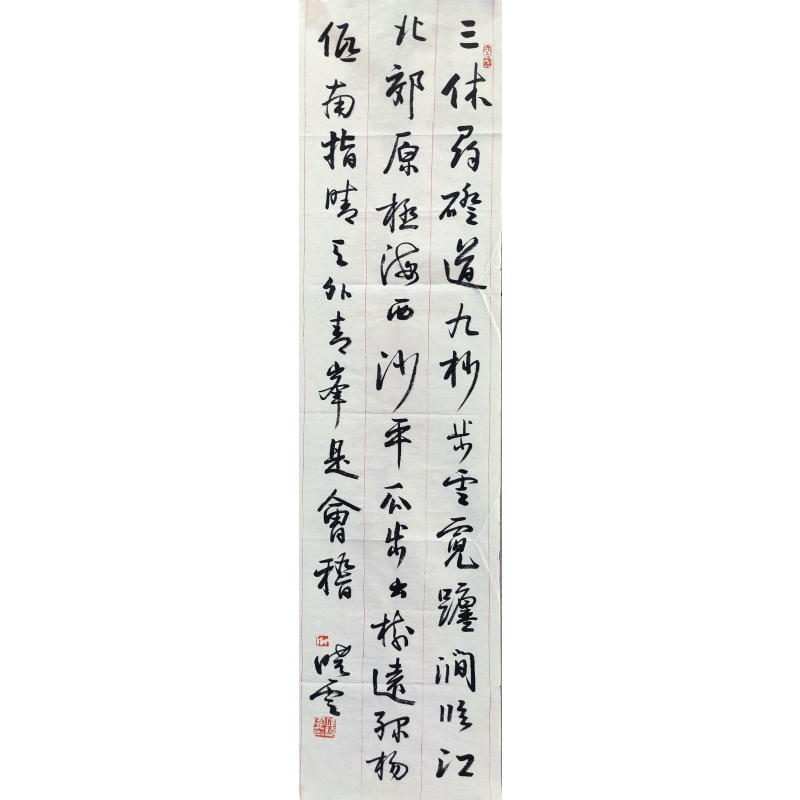 三休尋磴道九折步雲霓躔澗臨江
北郊原極海西沙平瓜步出樹遠綠楊
低南指晴天外青峯是會稽
曉雲